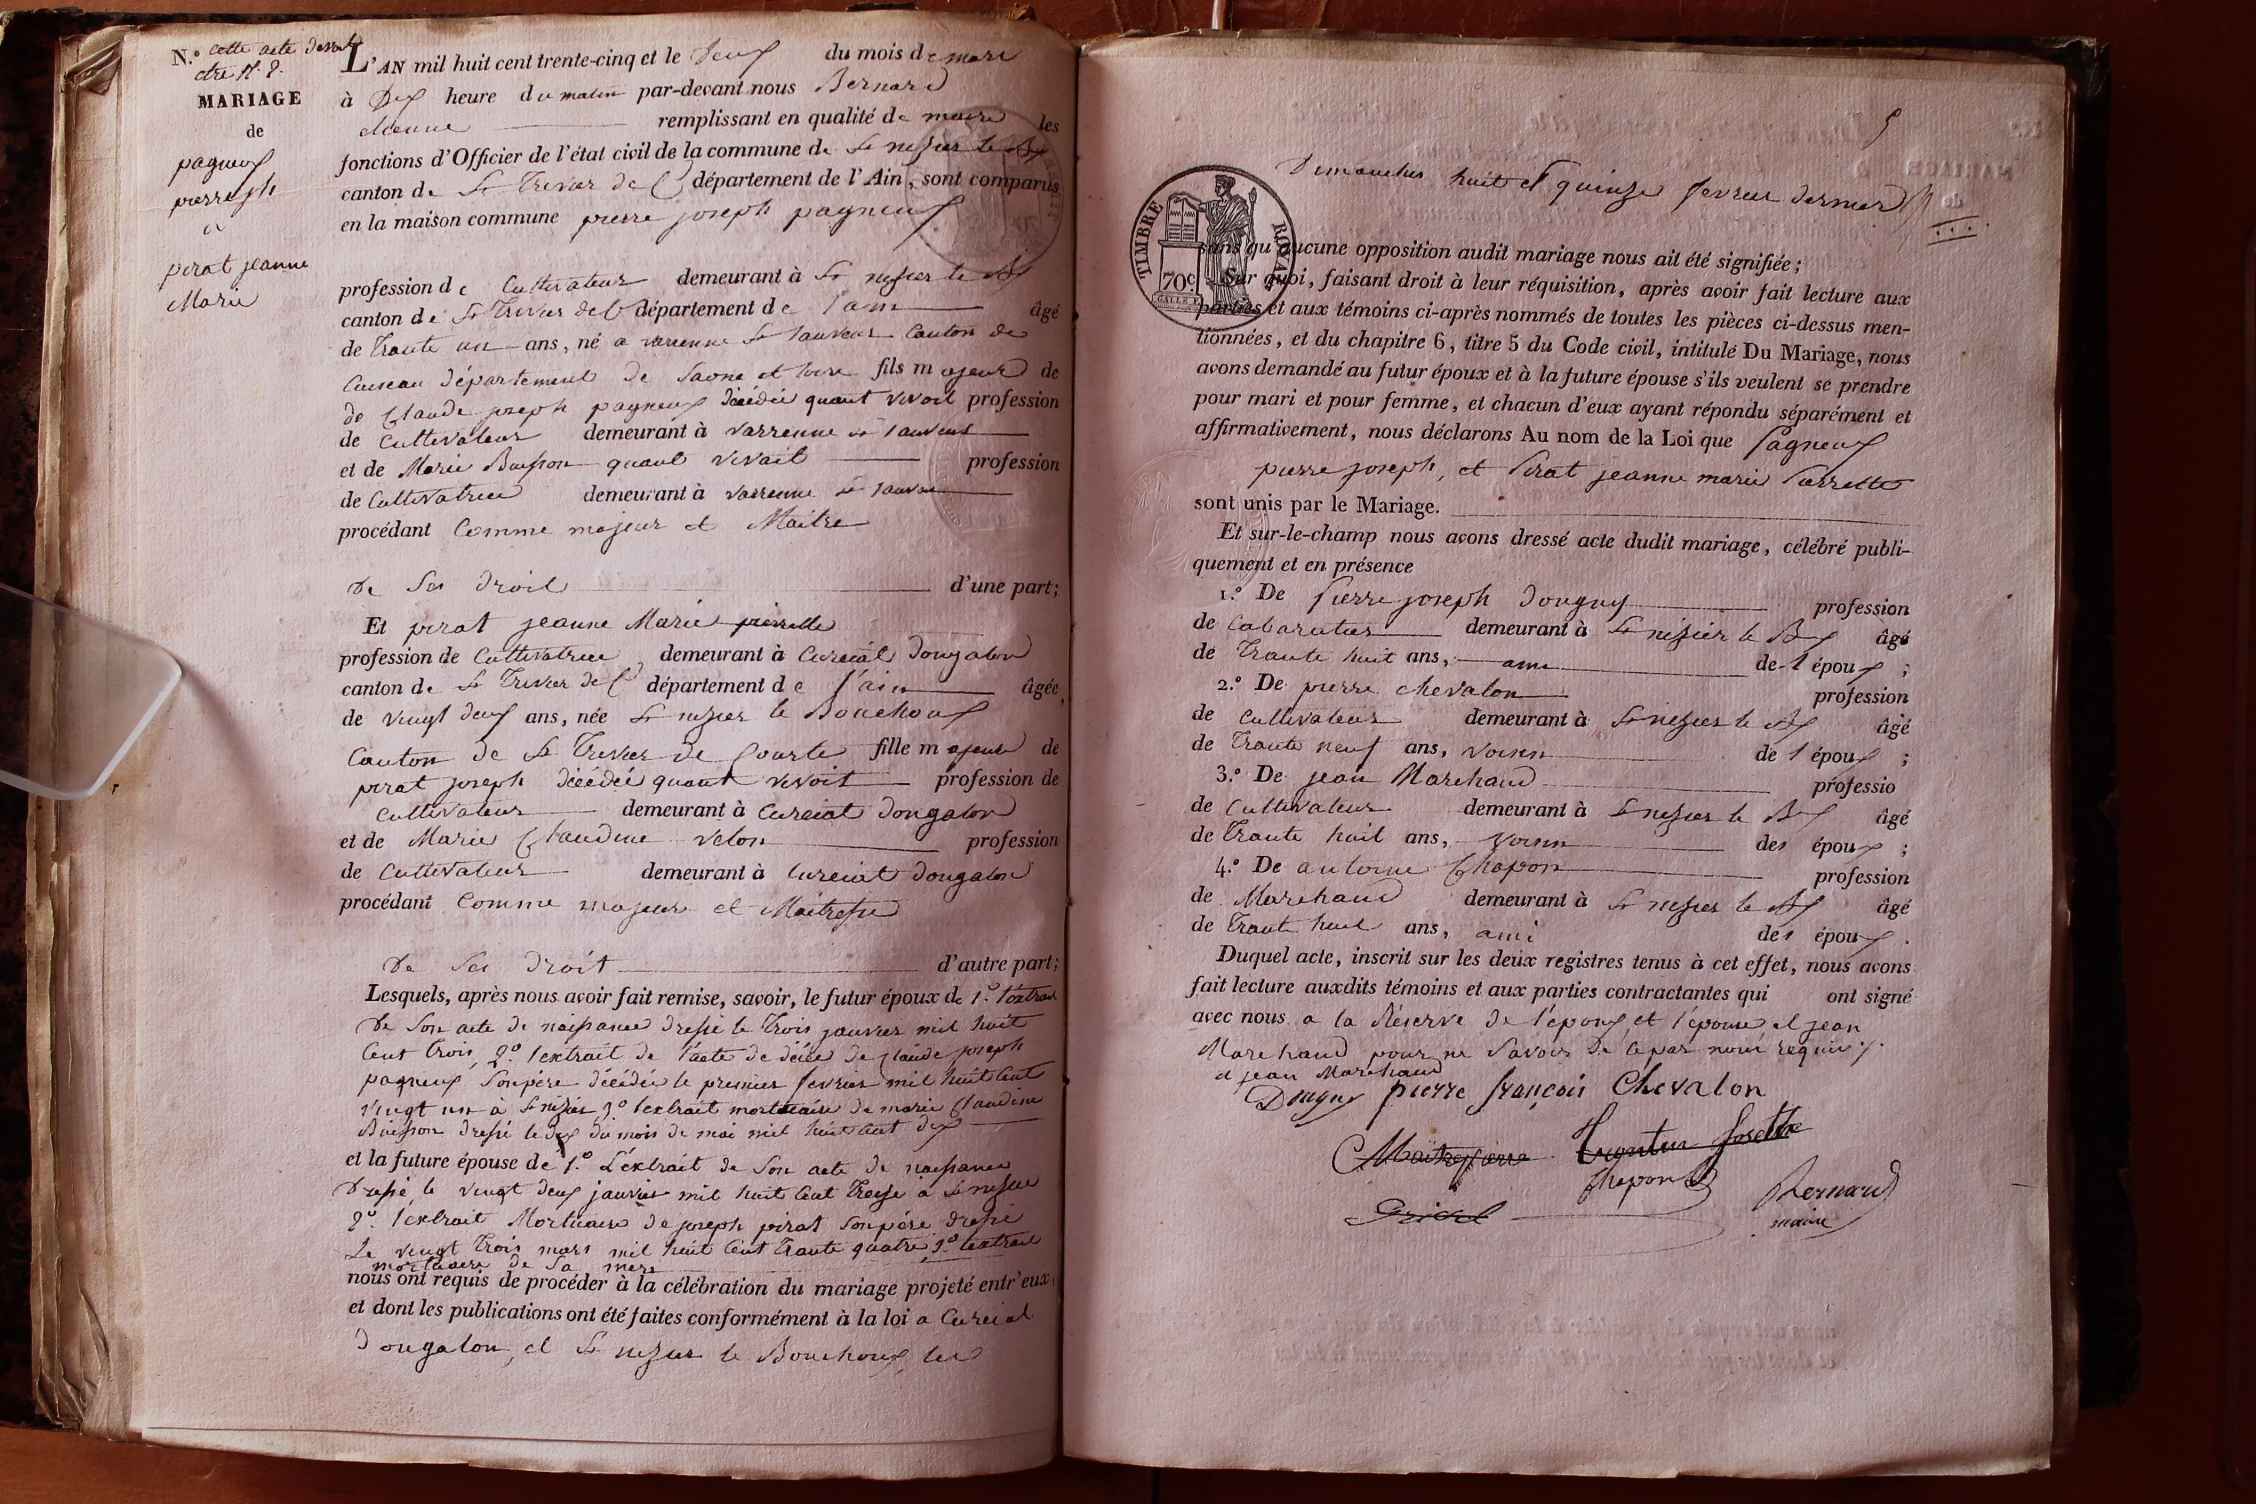 N.º cette acte devrait
être Nº 2.
MARIAGE
de
pagneux
pierre jph
à
perat jeanne
Marie
L'AN mil huit cent trente-cinq et le deux du mois de mars
à Dix heure du matin par-devant nous Bernard
etienne remplissant en qualité de maire les
fonctions d'Officier de l'état civil de la commune de St nizier le Bx
canton de St Trivier de C département de l'Ain, sont comparus
en la maison commune pierre joseph pagneux
profession de Cultivateur demeurant à St nizier le Bx
canton de St Trivier de C département de l'ain âgé
de Trante un ans, né a varenne St Sauveur Canton de
Cuiseau département de Saone et loire fils majeur de
de Claude joseph pagneux décédé quant vivoit profession
de Cultivateur demeurant à varrenne St Sauveur
et de Marie Buisson quant vivait profession
de Cultivatrice demeurant à varrenne St Sauveur
procédant Comme majeur et Maitre
de Ses droit d'une part;
Et perat jeanne Marie pierrette
profession de Cultivatrice demeurant à Curciat dongalon
canton de St Trivier de C département de l'ain âgée
de vingt deux ans, née St nizier le Bouchoux
Canton de St Trivier de Courte fille majeur de
perat joseph décédé quant vivoit profession de
Cultivateur demeurant à Curciat dongalon
et de Marie Claudine velon profession
de Cultivateur demeurant à Curciat dongalon
procédant Comme majeur et Maitresse
de Ses droit d'autre part;
Lesquels, après nous avoir fait remise, savoir, le futur époux de 1.º l'extrait
de Son acte de naissance dressé le trois janvier mil huit
Cent trois, 2.º l'extrait de l'acte de décès de Claude joseph
pagneux Son père décédé le premier fevrier mil huit Cent
vingt un à St nizier 3.º l'extrait mortuaire de marie Claudine
Buisson dressé le dix du mois de mai mil huit Cent dix
et la future épouse de 1.º L'extrait de Son acte de naissance
dressé le vingt deux janvier mil huit Cent treize à St nizier
2.º l'extrait Mortuaire de joseph pirat Son père dressé
Le vingt trois mars mil huit Cent trante quatre, 3.º l'extrait
mortuaire de Sa mere
nous ont requis de procéder à la célébration du mariage projeté entr'eux
et dont les publications ont été faites conformément à la loi a Curciat
dongalon, et St nizier le Bouchoux, les
5
Dimanches huit et quinze fevrier dernier
TIMBRE ROYAL
70c
sans qu'aucune opposition audit mariage nous ait été signifiée;
Sur quoi, faisant droit à leur réquisition, après avoir fait lecture aux
parties et aux témoins ci-après nommés de toutes les pièces ci-dessus men-
tionnées, et du chapitre 6, titre 5 du Code civil, intitulé Du Mariage, nous
avons demandé au futur époux et à la future épouse s'ils veulent se prendre
pour mari et pour femme, et chacun d'eux ayant répondu séparément et
affirmativement, nous déclarons Au nom de la Loi que Pagneux
pierre joseph, et Pirat jeanne marie Pierrette
sont unis par le Mariage.
Et sur-le-champ nous avons dressé acte dudit mariage, célébré publi-
quement et en présence
1.º De Pierre joseph dougny profession
de Cabaratier demeurant à St nizier le Bx âgé
de Trante huit ans, ami de l'époux;
2.º De pierre chevalon profession
de Cultivateur demeurant à St nizier le Bx âgé
de Trante neuf ans, voisin de l'époux;
3.º De jean Marchand professio
de Cultivateur demeurant à St nizier le Bx âgé
de Trante huit ans, voisin des époux;
4.º De antoine Chapon profession
de Marchand demeurant à St nizier le Bx âgé
de Trante huit ans, ami des époux.
Duquel acte, inscrit sur les deux registres tenus à cet effet, nous avons
fait lecture auxdits témoins et aux parties contractantes qui ont signé
avec nous a la Réserve de l'époux, et l'épouse, et jean
Marchand pour ne Savoir de cepar nous requis
et jean Marchand
Dougny pierre françois Chevalon
Chapon
Bernard
maire